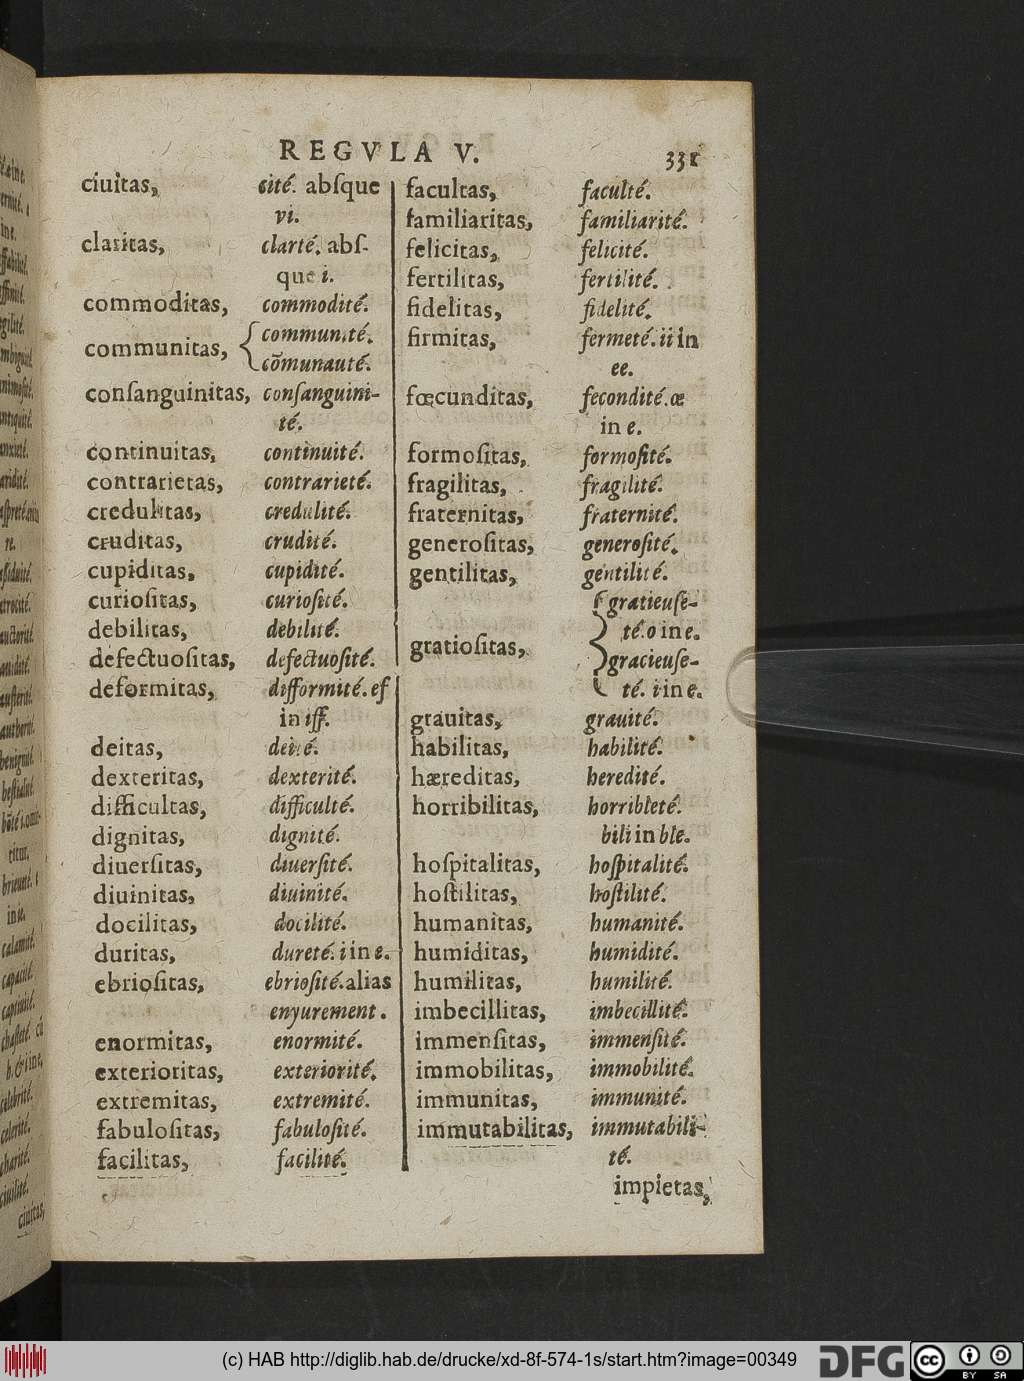 REGVLA V.
331
ciuitas, cité. abſque
vi.
claritas, clarté. abſ-
que i.
commoditas, commodité.
communitas, { communité.
cõmunauté.
conſanguinitas, conſanguini-
té.
continuitas, continuité.
contrarietas, contrarieté.
credulitas, credulité.
cruditas, crudité.
cupiditas, cupidité.
curioſitas, curioſité.
debilitas, debilité.
defectuoſitas, defectuoſité.
deformitas, difformité. ef
in iff.
deitas, deité.
dexteritas, dexterité.
difficultas, difficulté.
dignitas, dignité.
diuerſitas, diuerſité.
diuinitas, diuinité.
docilitas, docilité.
duritas, dureté. i in e.
ebrioſitas, ebrioſité. alias
enyurement.
enormitas, enormité.
exterioritas, exteriorité.
extremitas, extremité.
fabuloſitas, fabuloſité.
facilitas, facilité.
facultas, faculté.
familiaritas, familiarité.
felicitas, felicité.
fertilitas, fertilité.
fidelitas, fidelité.
firmitas, fermeté. ii in
ee.
fœcunditas, fecondité. œ
in e.
formoſitas, formoſité.
fragilitas, fragilité.
fraternitas, fraternité.
generoſitas, generoſité.
gentilitas, gentilité.
gratioſitas, { gratieuſe-
té. o in e.
gracieuſe-
té. i in e.
grauitas, grauité.
habilitas, habilité.
hæreditas, heredité.
horribilitas, horribleté.
bili in ble.
hoſpitalitas, hoſpitalité.
hoſtilitas, hoſtilité.
humanitas, humanité.
humiditas, humidité.
humilitas, humilité.
imbecillitas, imbecillité.
immenſitas, immenſité.
immobilitas, immobilité.
immunitas, immunité.
immutabilitas, immutabili-
té.
impietas,
(c) HAB http://diglib.hab.de/drucke/xd-8f-574-1s/start.htm?image=00349
DFG
cc BY SA